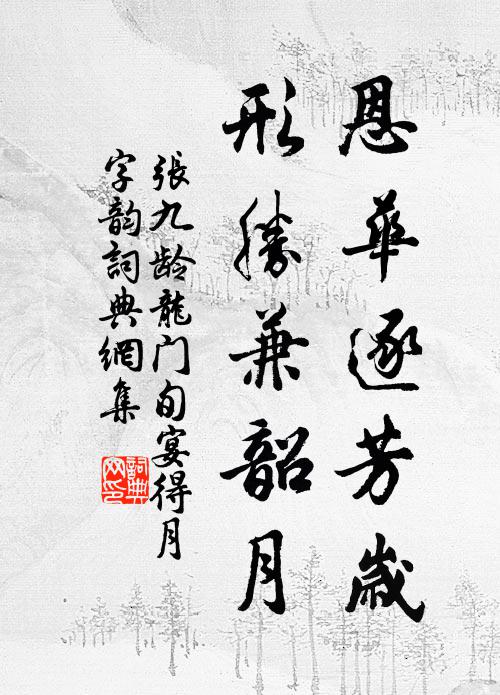 恩華逐芳歲
形勝兼韶月
張九龄龍门旬宴得月
字韵詞典網集
詞典
网印